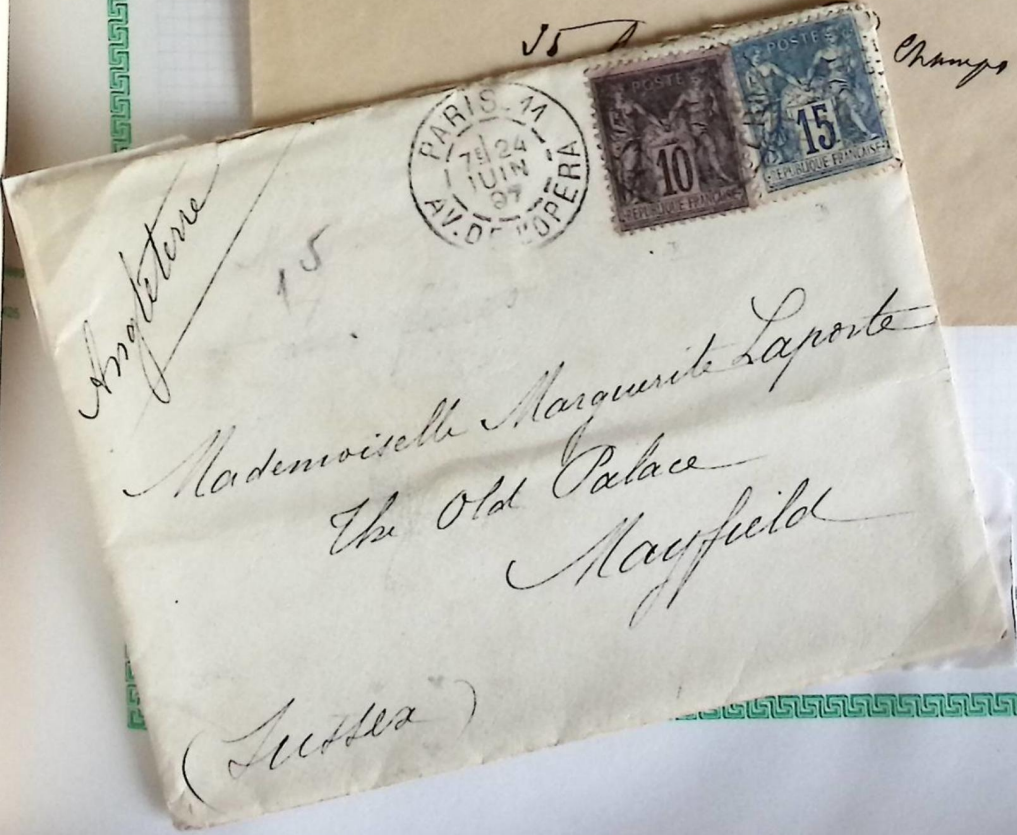 35
Champs
PARIS. 11
7E 24
JUIN
97
AV. DE L'OPERA
POSTE
10
REPUBLIQUE FRANCAISE
POSTE
15
REPUBLIQUE FRANCAISE
Angleterre
15
Mademoiselle Marguerite Laporte
The Old Palace
Mayfield
(Sussex)